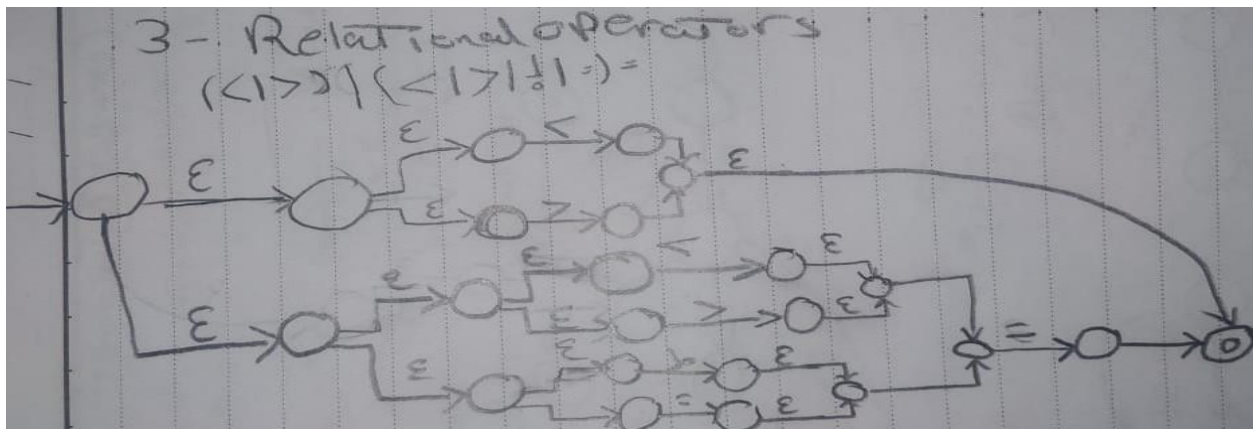 3- Relational operators
(<|>)|(<|>|!|=)=
ε <
ε ε
ε >
ε < ε
ε ε > ε
ε
ε ε ε =
ε = ε